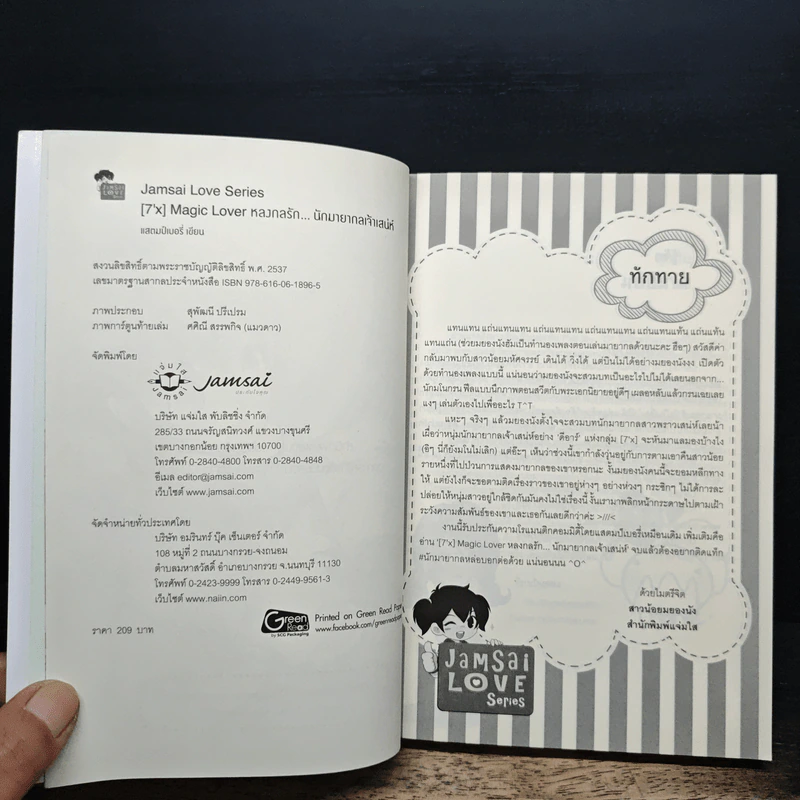 JAMSAI
LOVE
Series
Jamsai Love Series
[7'x] Magic Lover หลงกลรัก... นักมายากลเจ้าเสน่ห์
แสตมป์เบอรี่ เขียน
สงวนลิขสิทธิ์ตามพระราชบัญญัติลิขสิทธิ์ พ.ศ. 2537
เลขมาตรฐานสากลประจำหนังสือ ISBN 978-616-06-1896-5
ภาพประกอบ สุพัฒนี ปรีเปรม
ภาพการ์ตูนท้ายเล่ม ศศิณี สรรพกิจ (แมวดาว)
จัดพิมพ์โดย
แจ่มใส
Jamsai
Jamsai
บริษัท แจ่มใส พับลิชชิ่ง จำกัด
285/33 ถนนจรัญสนิทวงศ์ แขวงบางขุนศรี
เขตบางกอกน้อย กรุงเทพฯ 10700
โทรศัพท์ 0-2840-4800 โทรสาร 0-2840-4848
อีเมล editor@jamsai.com
เว็บไซต์ www.jamsai.com
จัดจำหน่ายทั่วประเทศโดย
บริษัท อมรินทร์ บุ๊ค เซ็นเตอร์ จำกัด
108 หมู่ที่ 2 ถนนบางกรวย-จงถนอม
ตำบลมหาสวัสดิ์ อำเภอบางกรวย จ.นนทบุรี 11130
โทรศัพท์ 0-2423-9999 โทรสาร 0-2449-9561-3
เว็บไซต์ www.naiin.com
ราคา 209 บาท
Green
Read
by SCG Packaging
Printed on Green Read Pape
www.facebook.com/greenreadpape
ทักทาย
แทนแทน แถ่นแทนแทน แถ่นแทนแทน แถ่นแทนแทน แถ่นแทนแท้น แถ่นแท้น
แทนแถ่น (ช่วยมยองนังฮัมเป็นทำนองเพลงตอนเล่นมายากลด้วยนะคะ ฮือๆ) สวัสดีค่า
กลับมาพบกับสาวน้อยมหัศจรรย์ เดินได้ วิ่งได้ แต่บินไม่ได้อย่างมยองนังงง เปิดตัว
ด้วยทำนองเพลงแบบนี้ แน่นอนว่ามยองนังจะสวมบทเป็นอะไรไปไม่ได้เลยนอกจาก...
นักมโนกรน ฟีลแบบนึกภาพตอนสวีตกับพระเอกนิยายอยู่ดีๆ เผลอหลับแล้วกรนเฉยเลย
แงๆ เล่นตัวเองไปเพื่ออะไร T^T
แหะๆ จริงๆ แล้วมยองนังตั้งใจจะสวมบทนักมายากลสาวพราวเสน่ห์เลยน้า
เผื่อว่าหนุ่มนักมายากลเจ้าเสน่ห์อย่าง 'ดีอาร์' แห่งกลุ่ม [7'x] จะหันมาแลมองบ้างไง
(อีๆ นี่ก็ยังมโนไม่เลิก) แต่อ๊ะๆ เห็นว่าช่วงนี้เขากำลังวุ่นอยู่กับการตามเอาคืนสาวน้อย
รายหนึ่งที่ไปป่วนการแสดงมายากลของเขาหรอกนะ งั้นมยองนังคนนี้จะยอมหลีกทาง
ให้ แต่ยังไงก็จะขอตามติดเรื่องราวของเขาอยู่ห่างๆ อย่างห่วงๆ กระซิกๆ ไม่ได้การละ
ปล่อยให้หนุ่มสาวอยู่ใกล้ชิดกันมันคงไม่ใช่เรื่องนี้ งั้นเรามาพลิกหน้ากระดาษไปตามเฝ้า
ระวังความสัมพันธ์ของเขาและเธอกันเลยดีกว่าค่ะ >///<
งานนี้รับประกันความโรแมนติกคอมมิดี้โดยแสตมป์เบอรี่เหมือนเดิม เพิ่มเติมคือ
อ่าน '[7'x] Magic Lover หลงกลรัก... นักมายากลเจ้าเสน่ห์' จบแล้วต้องอยากติดแท็ก
#นักมายากลหล่อบอกต่อด้วย แน่นอนนน ^O^
ด้วยไมตรีจิต
สาวน้อยมยองนัง
สำนักพิมพ์แจ่มใส
JAMSAI
LOVE
Series